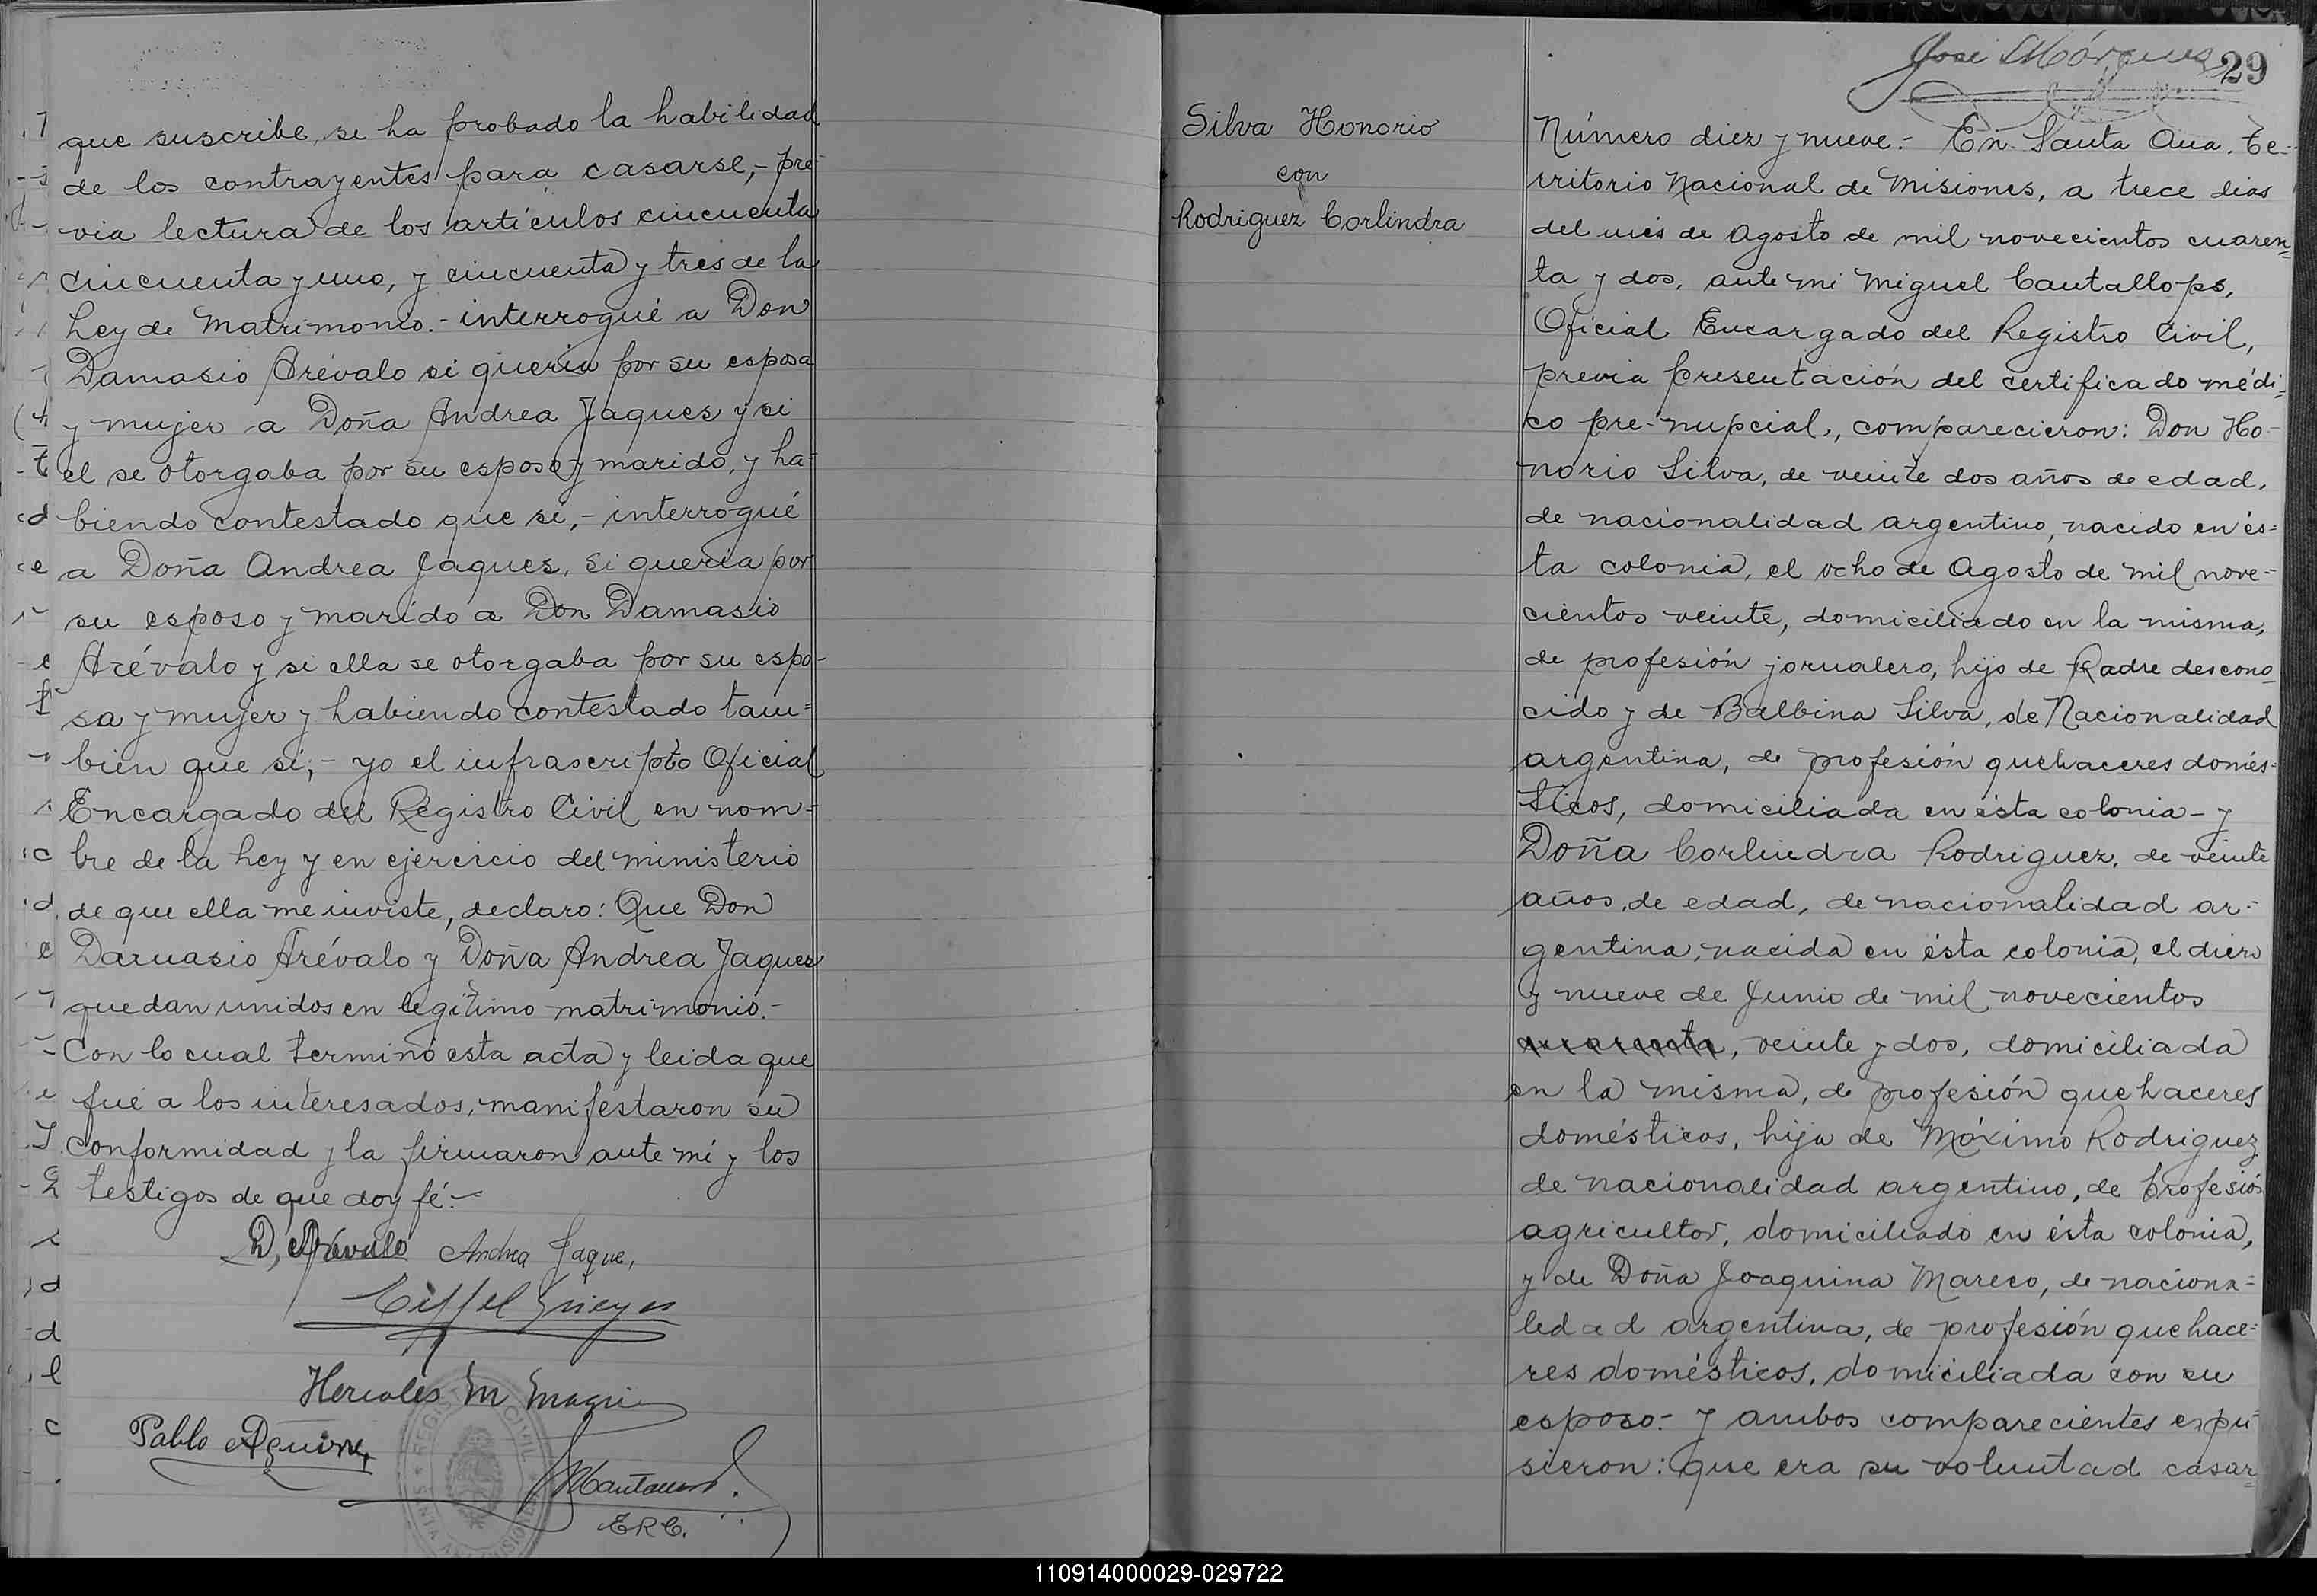 que suscribe, se ha probado la habilidad
de los contrayentes para casarse,- pre-
via lectura de los artículos cincuenta
cincuenta y uno, y cincuenta y tres de la
Ley de Matrimonio.- interrogué a Don
Damasio Arévalo si queria por su esposa
y mujer a Doña Andrea Jaques y si
el se otorgaba por su esposo y marido, y ha-
biendo contestado que si,- interrogué
a Doña Andrea Jaques, si queria por
su esposo y marido a Don Damasio
Arévalo y si ella se otorgaba por su espo-
sa y mujer y habiendo contestado tam=
bien que si;- yo el infrascripto Oficial
Encargado del Registro Civil en nom-
bre de la Ley y en ejercicio del ministerio
de que ella me inviste, declaro: Que Don
Damasio Arévalo y Doña Andrea Jaques
quedan unidos en legítimo matrimonio.-
Con lo cual terminó esta acta y leida que
fué a los interesados, manifestaron su
conformidad y la firmaron ante mí y los
testigos de que doy fé.-
D, Arévalo Andrea Jaque,
Hercules M
Pablo Aguirre
E.R.C.
Silva Honorio
con
Rodriguez Corlindra
José Márquez
29
Número diez y nueve.- En Santa Ana. Te-
rritorio Nacional de Misiones, a trece dias
del mes de Agosto de mil novecientos cuaren=
ta y dos, ante mi Miguel Cantallops,
Oficial Encargado del Registro Civil,
previa presentación del certificado médi=
co pre-nupcial, comparecieron: Don Ho-
norio Silva, de veinte dos años de edad,
de nacionalidad argentino, nacido en és=
ta colonia, el ocho de Agosto de mil nove-
cientos veinte, domiciliado en la misma,
de profesión jornalero, hijo de Padre descono_
cido y de Balbina Silva, de Nacionalidad
argentina, de profesión quehaceres domés-
ticos, domiciliada en ésta colonia- y
Doña Corlindra Rodriguez, de veinte
años, de edad, de nacionalidad ar-
gentina, nacida en ésta colonia, el diez
y nueve de Junio de mil novecientos
cuarenta, veinte y dos, domiciliada
en la misma, de profesión quehaceres
domésticos, hija de Máximo Rodriguez
de nacionalidad argentino, de profesión
agricultor, domiciliado en ésta colonia,
y de Doña Joaquina Mareco, de naciona=
lidad argentina, de profesión quehace=
res domésticos, domiciliada con su
esposo.- y ambos comparecientes expu-
sieron: que era su voluntad casar=
110914000029-029722